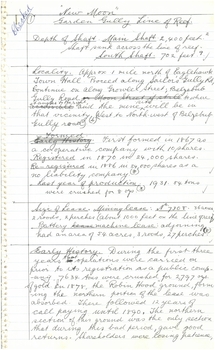 Checked
"New Moon"
Garden Gully Line of Reef
Depth of Shaft Main Shaft 2,400 feet
shaft sunk across the line of reef
South Shaft 702 feet
Locality. Approx 1 mile north of Eaglehawk
Town Hall. Proceed along Sailors Gully Rd
continue on along
Gully Road
and the mine will be
West to North west of
Gully road
Formed
Early History First formed in 1867 as
a cooperative company with 10 shares
Registered in 1870 in 24,000 shares.
Re-registered in 1896 in 24,000 shares as a
no liability company
Last year of production, 1921. 84 tons
were crushed for 8 ozs
Size of Lease: Mining lease: No 7108.
2 roods, 3 perches (about 1000 feet on the line of reef)
Battery machine lease, adjoining
had an area of 24 acres, 2 roods, 27 perches
Early History During the first three
years operations were carried on
prior to its registration as a public comp-
any. 7638 tons were crushed for 2797 ozs
of gold. In 1878, the Robin Hood ground, form-
ing the northern portion of the lease was
absorbed. There followed 11 years of
call paying until 1890. The northern
section of this ground was the only section
that during this bad period, gave good
returns. Shareholders were losing patience,